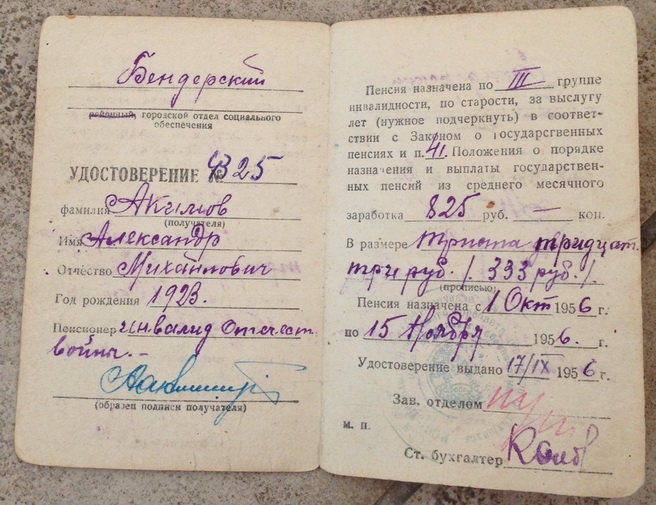 Бендерский
районный, городской отдел социального
обеспечения
УДОСТОВЕРЕНИЕ № 325
фамилия Акимов
(получателя)
Имя Александр
Отчество Михайлович
Год рождения 1923.
Пенсионер инвалид Отечест.
войны.-
(образец подписи получателя)
Пенсия назначена по III группе
инвалидности, по старости, за выслугу
лет (нужное подчеркнуть) в соответ-
ствии с Законом о государственных
пенсиях и п. 41. Положения о порядке
назначения и выплаты государствен-
ных пенсий из среднего месячного
заработка 825 руб. — коп.
В размере триста тридцат
три руб. /. 333 руб. /.
(прописью)
Пенсия назначена с 1 Окт 1956 г.
по 15 Ноября 1956. г.
Удостоверение выдано 17/IX 1956 г.
Зав. отделом
м. п.
Ст. бухгалтер